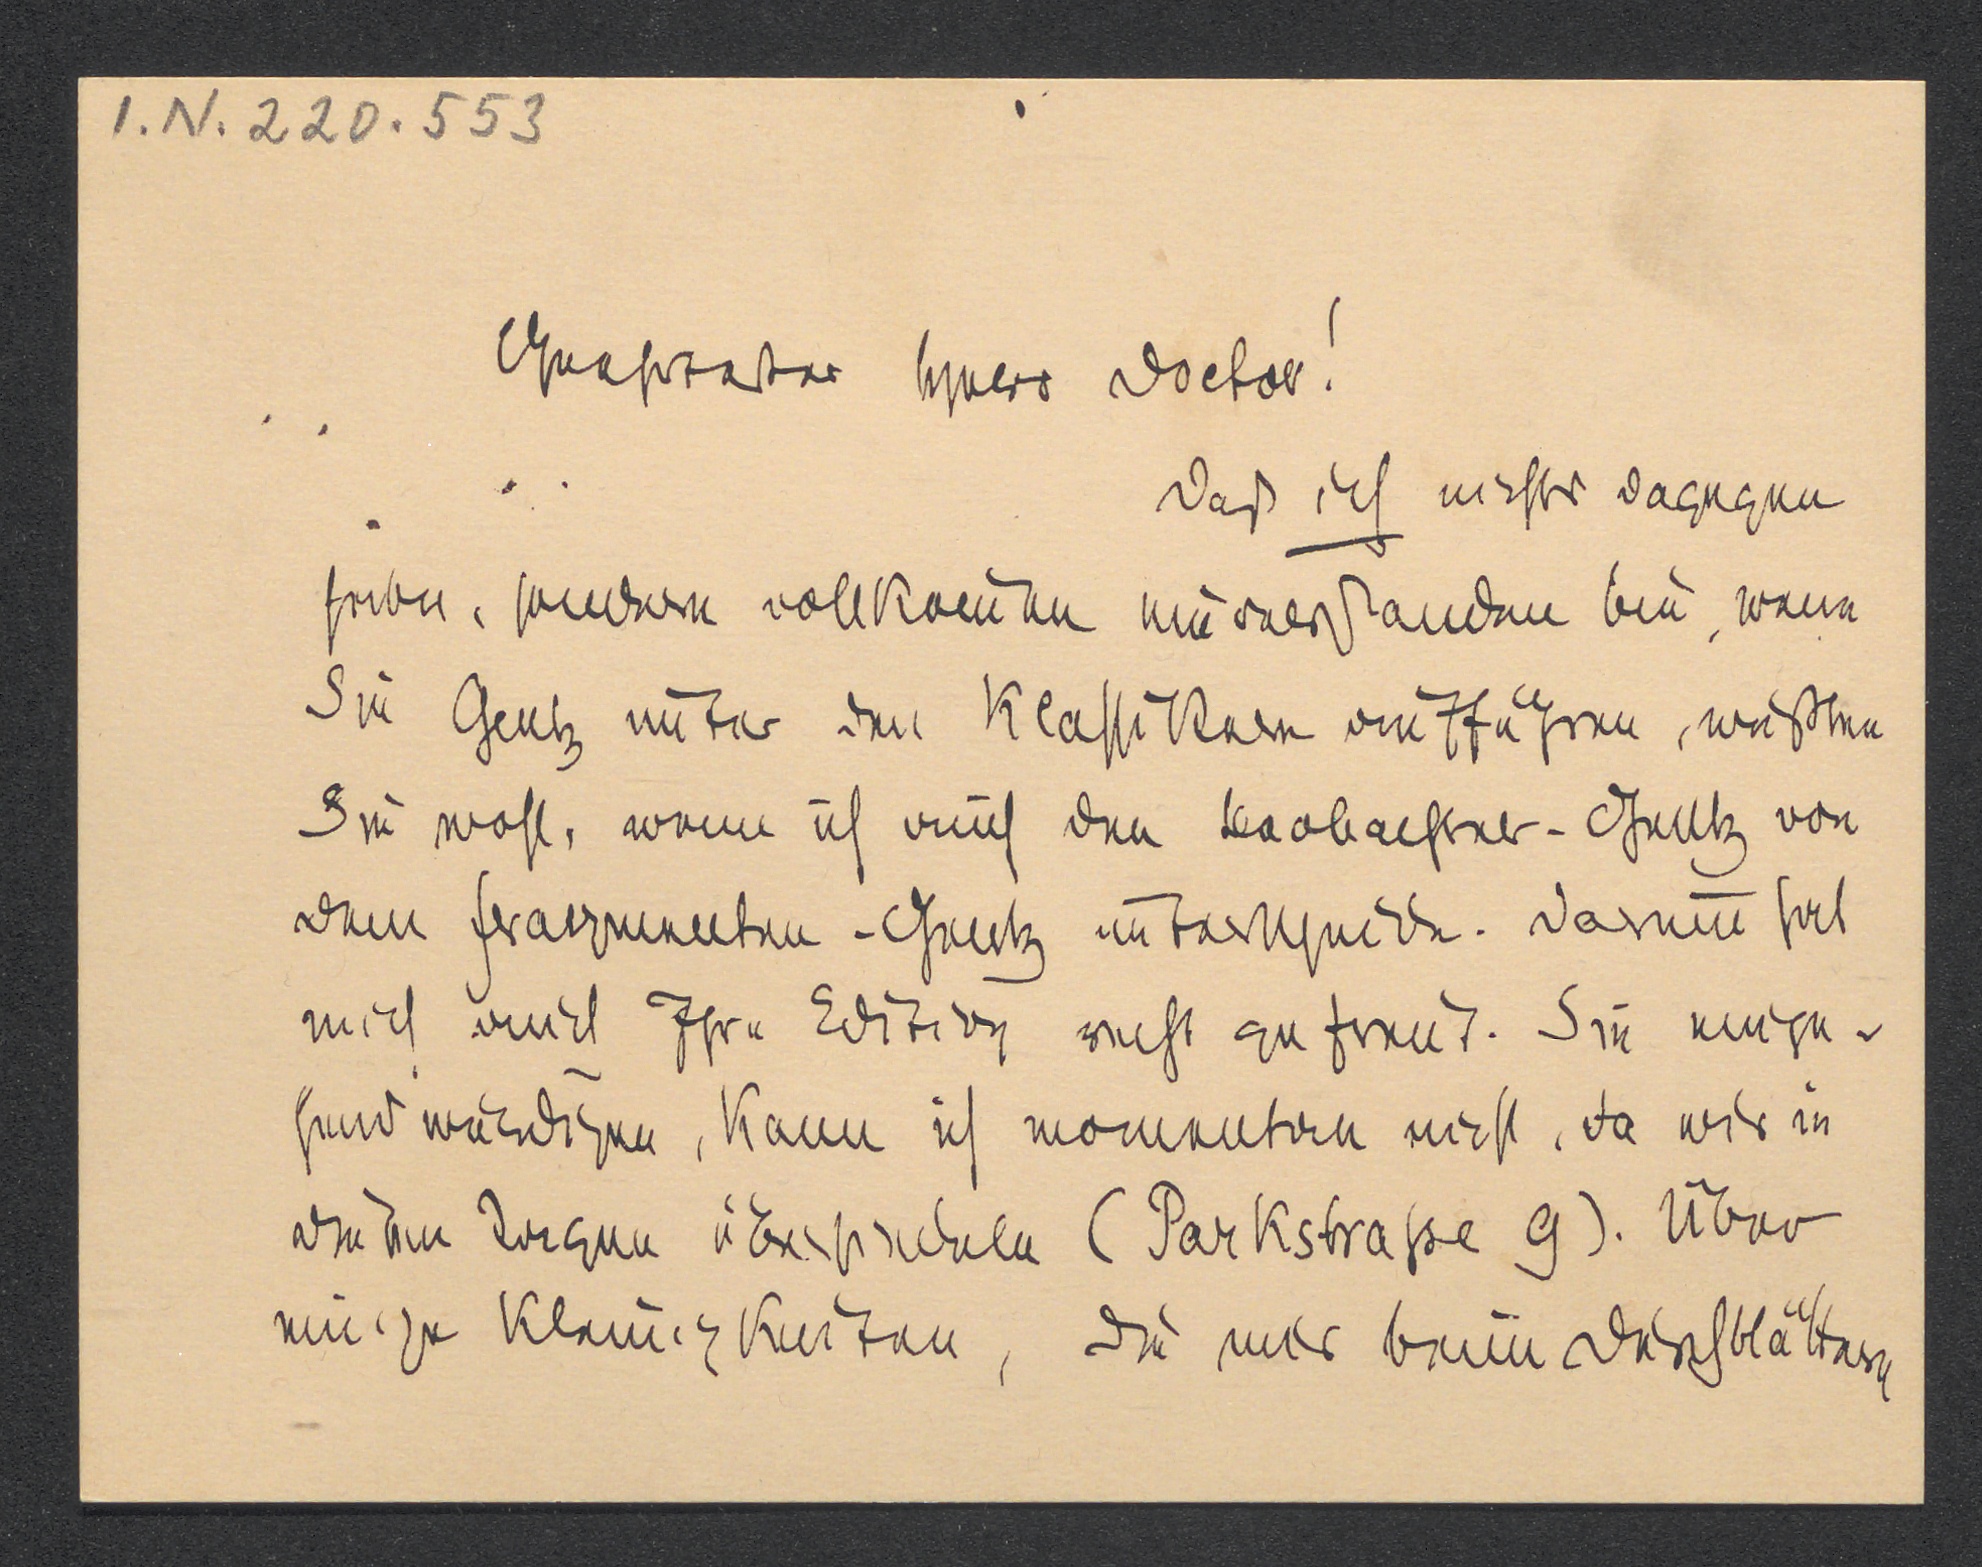 I.N. 220.553
Geehrtester Herr Doctor!
Daß ich nichts dagegen
habe, sondern vollkommen einverstanden bin, wenn
Sie Gentz unter den Klassikern aufführen, wußten
Sie wohl, wenn ich auch den Beobachter-Gentz von
dem Fragmenten-Gentz unterscheide. Darum hat
mich auch Ihre Edition recht gefreut. Sie einge-
hend würdigen, kann ich momentan nicht, da wir in
diesen Tagen übersiedeln (Parkstraße 9). Über
einige Kleinigkeiten, die mir beim Durchblättern